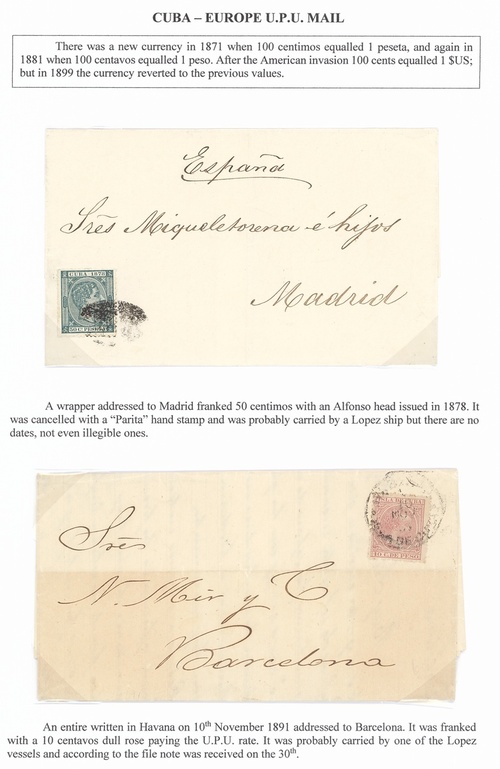 CUBA – EUROPE U.P.U. MAIL
There was a new currency in 1871 when 100 centimos equalled 1 peseta, and again in
1881 when 100 centavos equalled 1 peso. After the American invasion 100 cents equalled 1 $US;
but in 1899 the currency reverted to the previous values.
España
Sres Miqueletorena é hijos
Madrid
CUBA 1878
50 C PESETA
A wrapper addressed to Madrid franked 50 centimos with an Alfonso head issued in 1878. It
was cancelled with a “Parita” hand stamp and was probably carried by a Lopez ship but there are no
dates, not even illegible ones.
Sres
N. Mir y Cª
Barcelona
10 C. DE PESO
An entire written in Havana on 10th November 1891 addressed to Barcelona. It was franked
with a 10 centavos dull rose paying the U.P.U. rate. It was probably carried by one of the Lopez
vessels and according to the file note was received on the 30th.